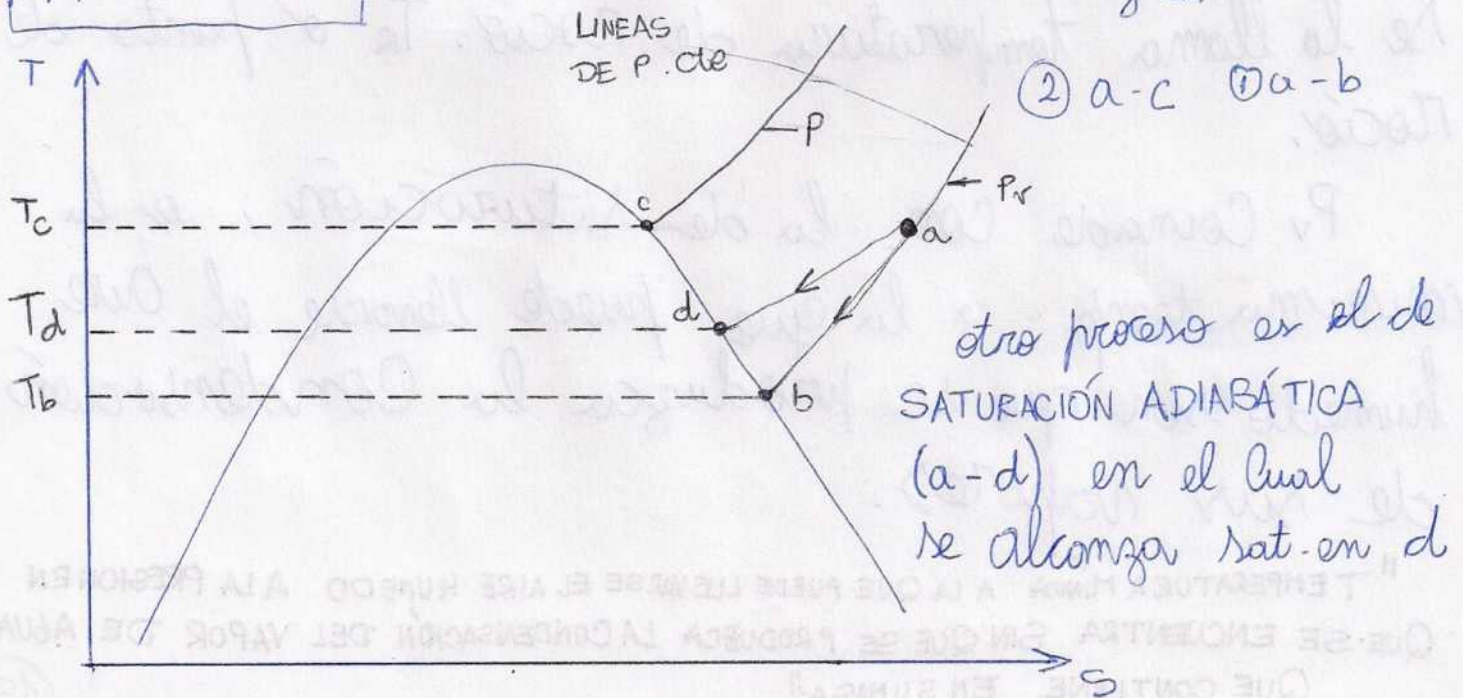 LINEAS
DE P. cte
T
② a-c ① a-b
P
Pv
Tc
c
a
Td
d
otro proceso es el de
SATURACIÓN ADIABÁTICA
Tb
b
(a-d) en el cual
se alcanza sat. en d
S